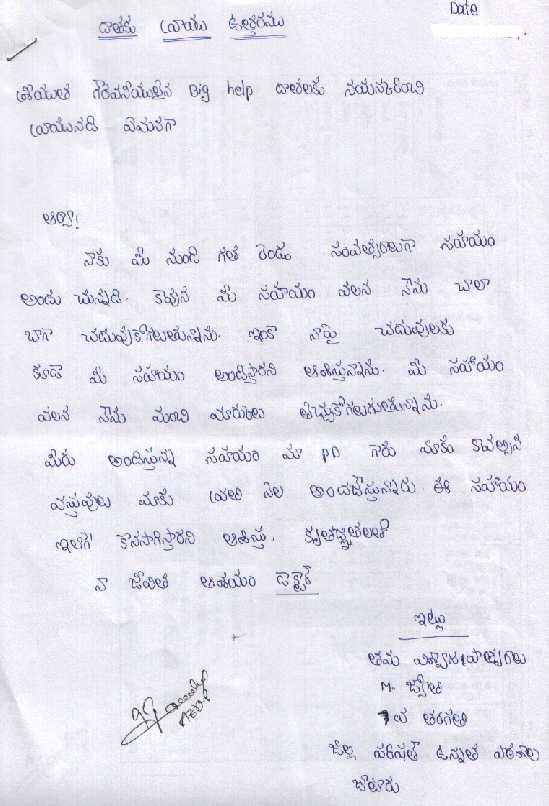 Date
దాతకు వ్రాయు ఉత్తరము
శ్రీయుత గౌరవనీయులైన Big help దాతలకు నమస్కరించి
వ్రాయునది ఏమనగా
అయ్యా!
నాకు మీ నుండి గత రెండు సంవత్సరాలుగా సహాయం
అందు చున్నది. కావున మీ సహాయం వలన నేను చాలా
బాగా చదువుకోగలుతున్నాను. ఇంకా నాపై చదువులకు
కూడా మీ సహాయం అందిస్తారని ఆశిస్తున్నాను. మీ సహాయం
వలన నేను మంచి మార్కులు తెచ్చుకోగలుగుతున్నాను.
మీరు అందిస్తున్న సహాయం మా PD గారు మాకు కావల్సిన
వస్తువులు మాకు ప్రతి నెల అందచేస్తున్నారు ఈ సహాయం
ఇలాగే కొనసాగిస్తారని ఆశిస్తు. కృతజ్ఞతలతో
నా జీవిత ఆశయం డాక్టర్
ఇట్లు
తమ విశ్వాసపాత్రురాలు
M. జ్యోతి
7వ తరగతి
జిల్లా పరిషత్ ఉన్నత పాఠశాల